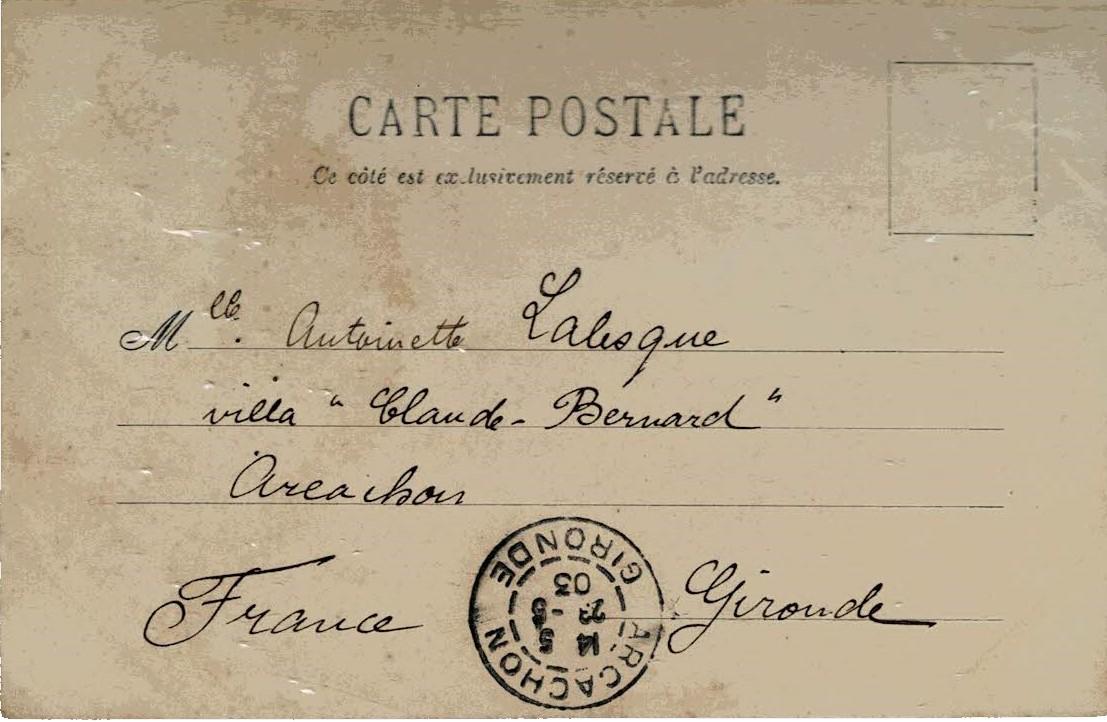 CARTE POSTALE
Ce côté est exclusivement réservé à l'adresse.
Mlle. Antoinette Lalesque
villa "Claude-Bernard"
Arcachon
France Gironde
ARCACHON GIRONDE
03